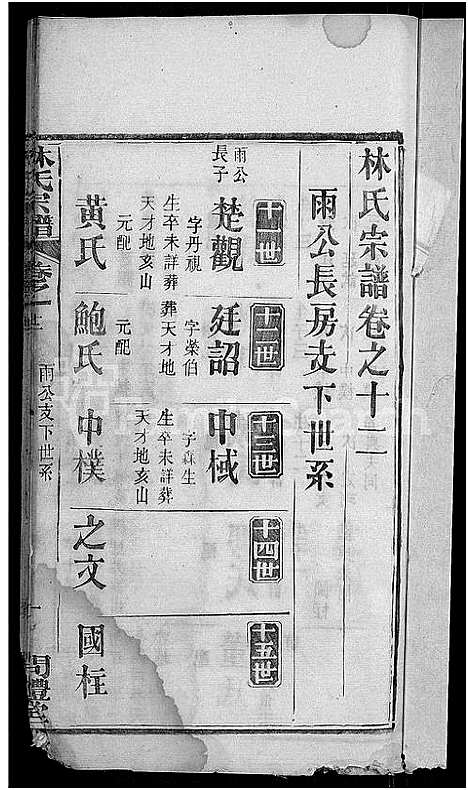 林氏宗譜卷之十二
雨公長房支下世系
十一世
十二世
十三世
十四世
十五世
雨公長子
楚觀
字丹視
生卒未詳葬
天才地亥山
元配
黃氏
廷詔
字榮伯
葬天才地
元配
鮑氏
中棫
字森生
生卒未詳葬
天才地亥山
中樸
之文
國柱
林氏宗譜
卷之十二
雨公支下世系
一